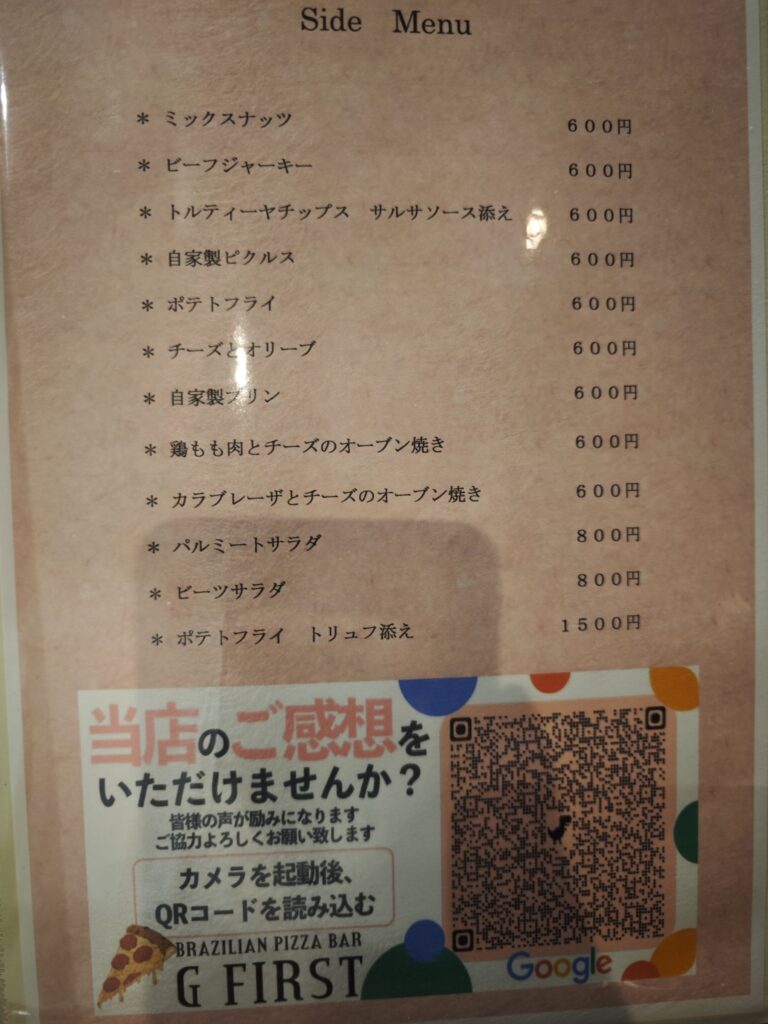 Side Menu
＊ ミックスナッツ ６００円
＊ ビーフジャーキー ６００円
＊ トルティーヤチップス　サルサソース添え ６００円
＊ 自家製ピクルス ６００円
＊ ポテトフライ ６００円
＊ チーズとオリーブ ６００円
＊ 自家製プリン ６００円
＊ 鶏もも肉とチーズのオーブン焼き ６００円
＊ カラブレーザとチーズのオーブン焼き ６００円
＊ パルミートサラダ ８００円
＊ ビーツサラダ ８００円
＊ ポテトフライ　トリュフ添え １５００円
当店のご感想を
いただけませんか？
皆様の声が励みになります
ご協力よろしくお願い致します
カメラを起動後、
QRコードを読み込む
BRAZILIAN PIZZA BAR
G FIRST
Google